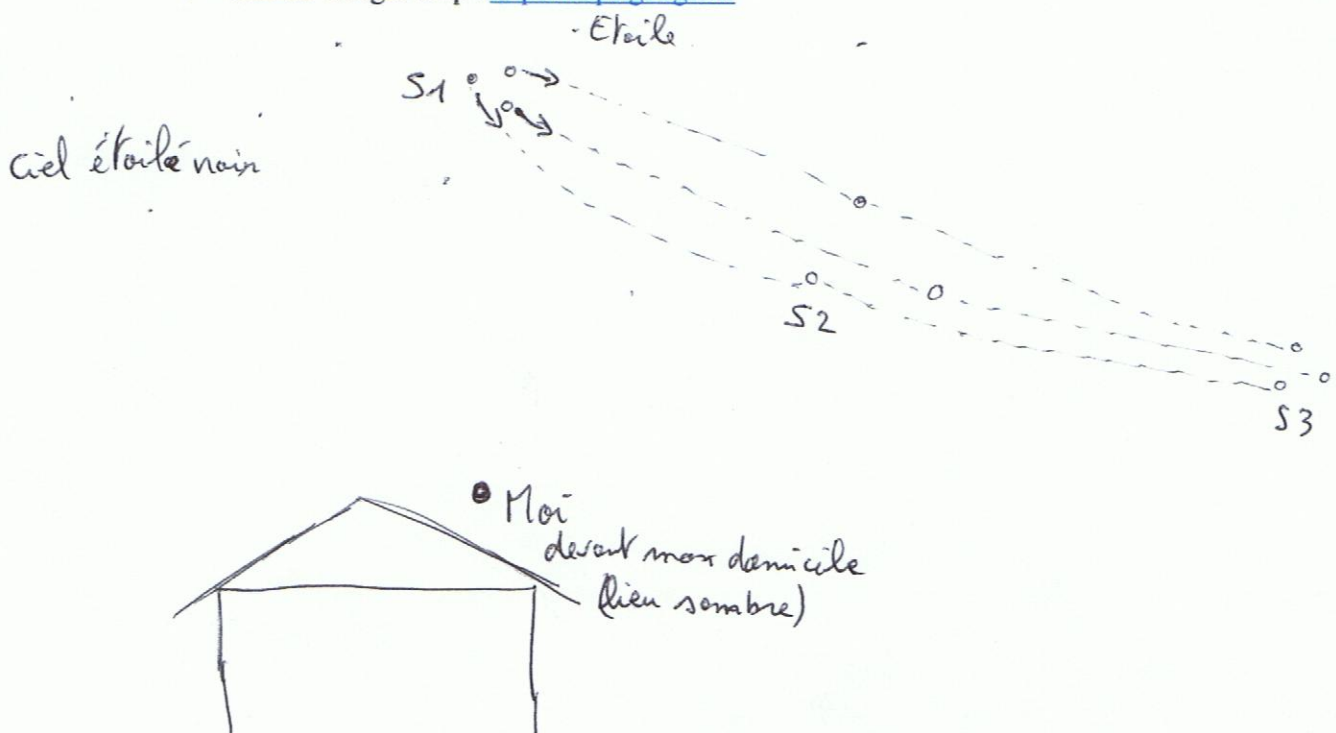 Etoile
S1
Ciel étoilé noir
S2
S3
Moi
devant mon domicile
(lieu sombre)